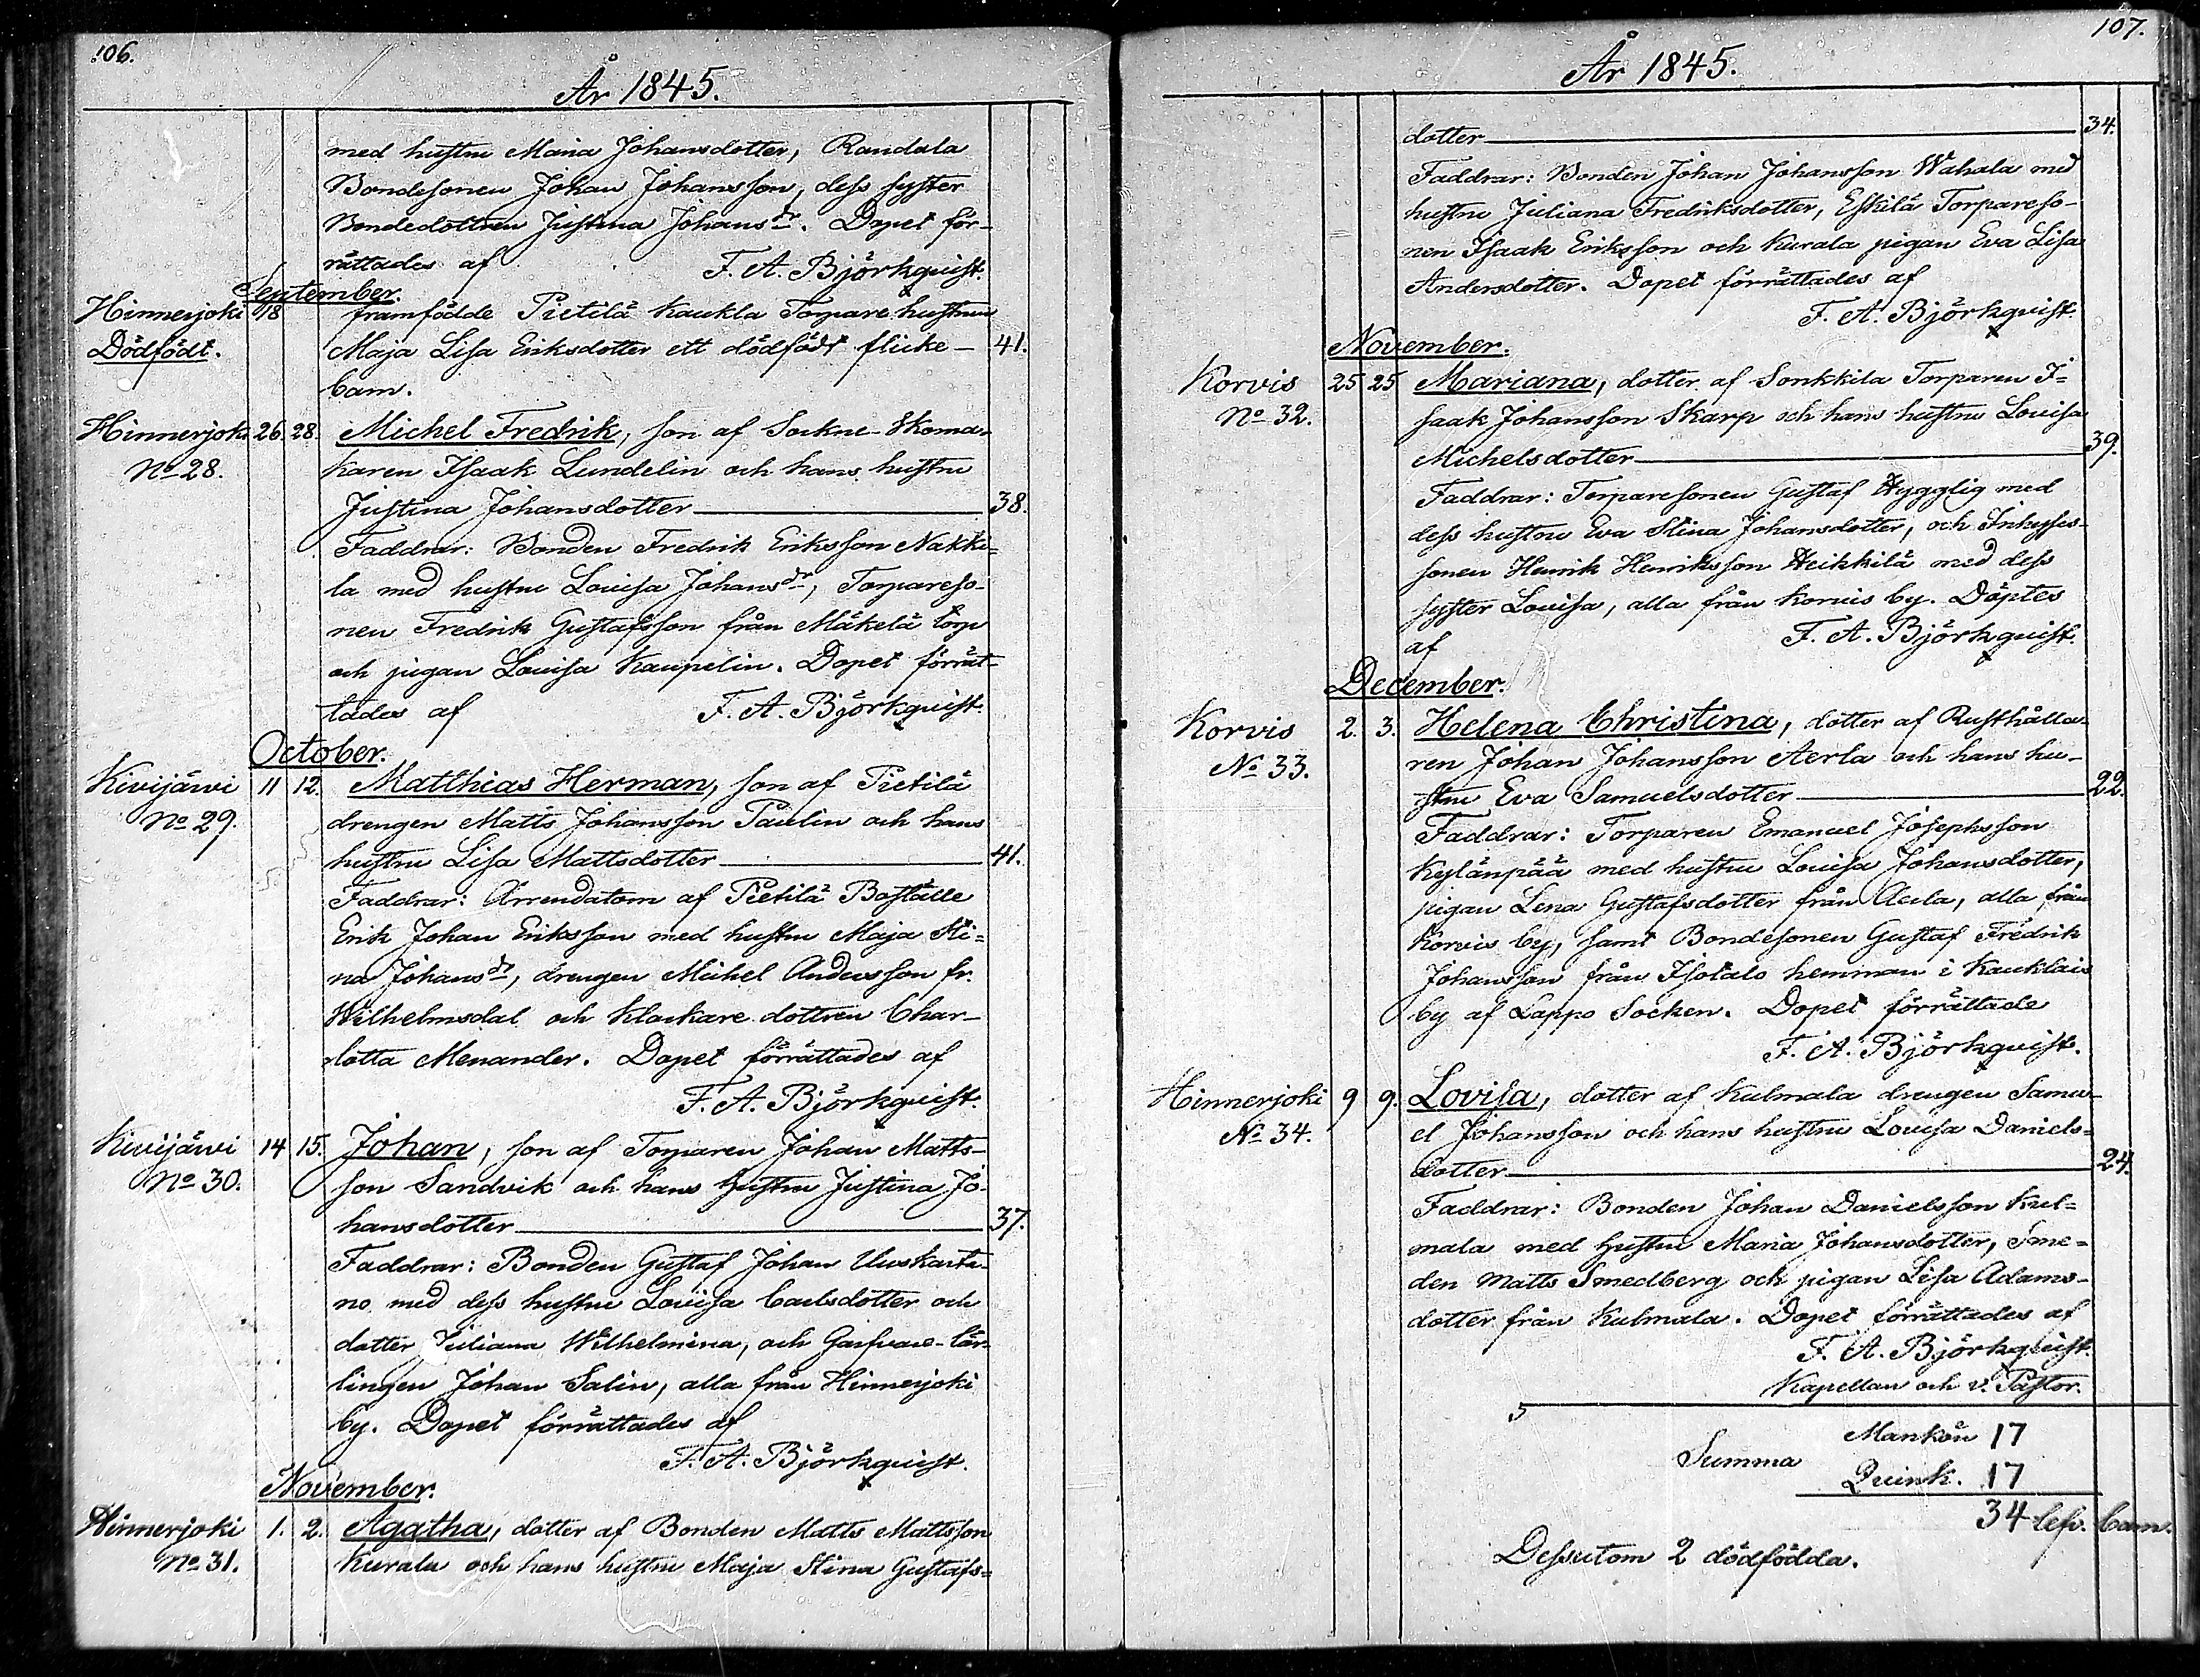 106.
År 1845.
med hustru Maria Johansdotter, Randala
Bondesonen Johan Johansson, dess syster
Bondedottren Justina Johansdr. Dopet för-
rättades af F. A. Björkquist.
September.
Hinnerjoki 18 framfödde Pietilä Kaukla Torpare hustrun
Dödfödt. Maja Lisa Eriksdotter ett dödfödt flicke- 41.
barn.
Hinnerjoki 26. 28. Michel Fredrik, son af Sockne Skoma-
No 28. karen Isaak Lundelin och hans hustru
Justina Johansdotter 38.
Faddrar: Bonden Fredrik Eriksson Nakki-
la med hustru Lovisa Johansdr, Torpareso-
nen Fredrik Gustafsson från Mäkelä torp
och pigan Lovisa Kaupelin. Dopet förrät-
tades af F. A. Björkquist.
October.
Kivijärvi 11 12. Matthias Herman, son af Pietilä
No 29. drengen Matts Johansson Paulin och hans
hustru Lisa Mattsdotter 41.
Faddrar: Arrendatorn af Pietilä Boställe
Erik Johan Eriksson med hustru Maja Sti=
na Johansdr, drengen Michel Andersson fr.
Wilhelmsdal och Klockare dottren Char-
lotta Menander. Dopet förrättades af
F. A. Björkquist.
Kivijärvi 14 15. Johan, son af Torparen Johan Matts-
No 30. son Sandvik och hans hustru Justina Jo-
hansdotter 37.
Faddrar: Bonden Gustaf Johan Uuskarta-
no med dess hustru Lovisa Carlsdotter och
dotter Juliana Wilhelmina, och Garfvare-lär-
lingen Johan Salin, alla från Hinnerjoki
by. Dopet förrättades af
F. A. Björkquist.
November.
Hinnerjoki 1. 2. Agatha, dotter af Bonden Matts Mattsson
No 31. Kurala och hans hustru Maja Stina Gustafs=
107.
År 1845.
dotter 34.
Faddrar: Bonden Johan Johansson Wahala med
hustru Juliana Fredriksdotter, Eskilä Torpareso-
nen Isaak Eriksson och Kurala pigan Eva Lisa
Andersdotter. Dopet förrättades af
F. A. Björkquist.
November.
Korvis 25 25 Mariana, dotter af Sonkkila Torparen I=
No 32. saak Johansson Skarp och hans hustru Lovisa
Michelsdotter 39.
Faddrar: Torparesonen Gustaf Hygglig med
dess hustru Eva Stina Johansdotter, och Inhyses-
sonen Henrik Henriksson Heikkilä med dess
syster Lovisa, alla från Korvis by. Döptes
af F. A. Björkquist.
December.
Korvis 2. 3. Helena Christina, dotter af Rusthålla-
No 33. ren Johan Johansson Aerla och hans hu-
stru Eva Samuelsdotter 22.
Faddrar: Torparen Emanuel Josephsson
Kylänpää med hustru Lovisa Johansdotter,
pigan Lena Gustafsdotter från Aerla, alla från
Korvis by, samt Bondesonen Gustaf Fredrik
Johansson från Isotalo hemman i Kauklais
by af Lappo Socken. Dopet förrättade
F. A. Björkquist.
Hinnerjoki 9 9. Lovisa, dotter af Kulmala drengen Samu-
No 34. el Johansson och hans hustru Lovisa Daniels=
dotter 24.
Faddrar: Bonden Johan Danielsson Kul=
mala med hustru Maria Johansdotter, Sme=
den Matts Smedberg och pigan Lisa Adams-
dotter från Kulmala. Dopet förrättades af
F. A. Björkquist.
Kapellan och v. Pastor.
Mankön 17
Summa
Quink. 17
34 lef. barn.
Dessutom 2 dödfödda.